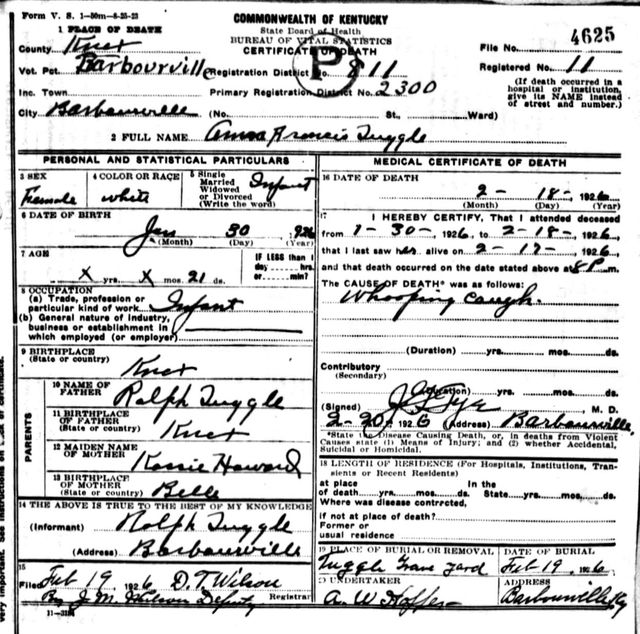 Form V. S. 1-50m-8-25-23
COMMONWEALTH OF KENTUCKY
State Board of Health
BUREAU OF VITAL STATISTICS
CERTIFICATE OF DEATH
1 PLACE OF DEATH
County Knox
File No. 4625
Vot. Pct. Barbourville
Registration District No. 811
Registered No. 11
P
Inc. Town
Primary Registration District No. 2300
(If death occurred in a hospital or institution, give its NAME instead of street and number.)
City Barbourville (No. St. Ward)
2 FULL NAME Anna Francis Tuggle
PERSONAL AND STATISTICAL PARTICULARS
3 SEX
Female
4 COLOR OR RACE
white
5 Single
Married
Widowed
or Divorced
(Write the word)
Infant
6 DATE OF BIRTH
Jan 30, 1926
(Month) (Day) (Year)
7 AGE
X yrs. X mos. 21 ds.
IF LESS than 1
day hrs.
or min.?
8 OCCUPATION
(a) Trade, profession or
particular kind of work Infant
(b) General nature of industry,
business or establishment in
which employed (or employer)
9 BIRTHPLACE
(State or country)
Knox
PARENTS
10 NAME OF
FATHER Ralph Tuggle
11 BIRTHPLACE
OF FATHER
(State or country) Knox
12 MAIDEN NAME
OF MOTHER Howard
13 BIRTHPLACE
OF MOTHER
(State or country) Bell
14 THE ABOVE IS TRUE TO THE BEST OF MY KNOWLEDGE
(Informant) Ralph Tuggle
(Address) Barbourville
15
Filed Feb 19, 1926 D. T. Wilson
Registrar
By J. M. Wilson Deputy
MEDICAL CERTIFICATE OF DEATH
16 DATE OF DEATH
2-18-, 1926
(Month) (Day) (Year)
17
I HEREBY CERTIFY, That I attended deceased
from 1-30-, 1926, to 2-18-, 1926
that I last saw her alive on 2-17-, 1926
and that death occurred on the date stated above at 8P m.
The CAUSE OF DEATH* was as follows:
Whooping cough.
(Duration) yrs. mos. ds.
Contributory
(Secondary)
(Duration) yrs. mos. ds.
(Signed) M. D.
2-20, 1926 (Address) Barbourville
*State the Disease Causing Death, or, in deaths from Violent
Causes state (1) Means of Injury; and (2) whether Accidental,
Suicidal or Homicidal.
18 LENGTH OF RESIDENCE (For Hospitals, Institutions, Transients or Recent Residents)
at place In the
of death yrs. mos. ds. State yrs. mos. ds.
Where was disease contracted,
if not at place of death?
Former or
usual residence
19 PLACE OF BURIAL OR REMOVAL
Tuggle Grave yard
DATE OF BURIAL
Feb 19, 1926
20 UNDERTAKER
A. W. Hopper
ADDRESS
Barbourville Ky